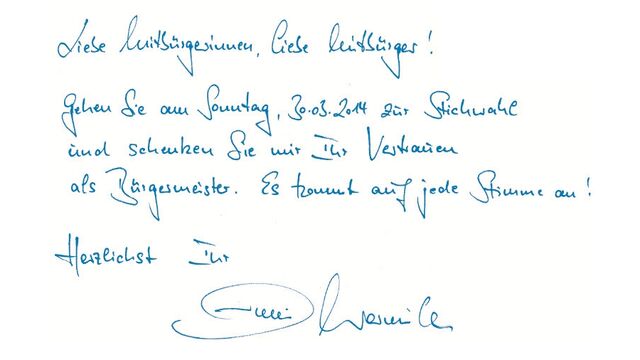 Liebe Mitbürgerinnen, liebe Mitbürger!
Gehen Sie am Sonntag, 30.03.2014 zur Stichwahl
und schenken Sie mir Ihr Vertrauen
als Bürgermeister. Es kommt auf jede Stimme an!
Herzlichst Ihr